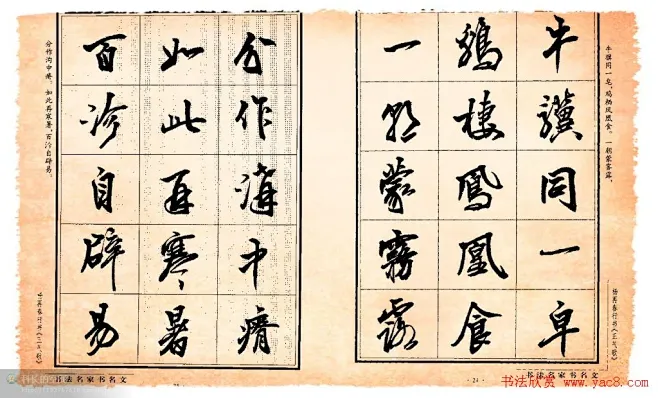 牛骥同一皂,鸡栖凤凰食。一朝蒙雾露,
牛驥同一皁
鷄棲鳳凰食
一朝蒙霧露
杨再春行书《正气歌》
书法名家书名文
分作溝中瘠
如此再寒暑
百沴自辟易
分作沟中瘠。如此再寒暑,百沴自辟易。
杨再春行书《正气歌》
书法名家书名文
书法欣赏 www.yac8.com